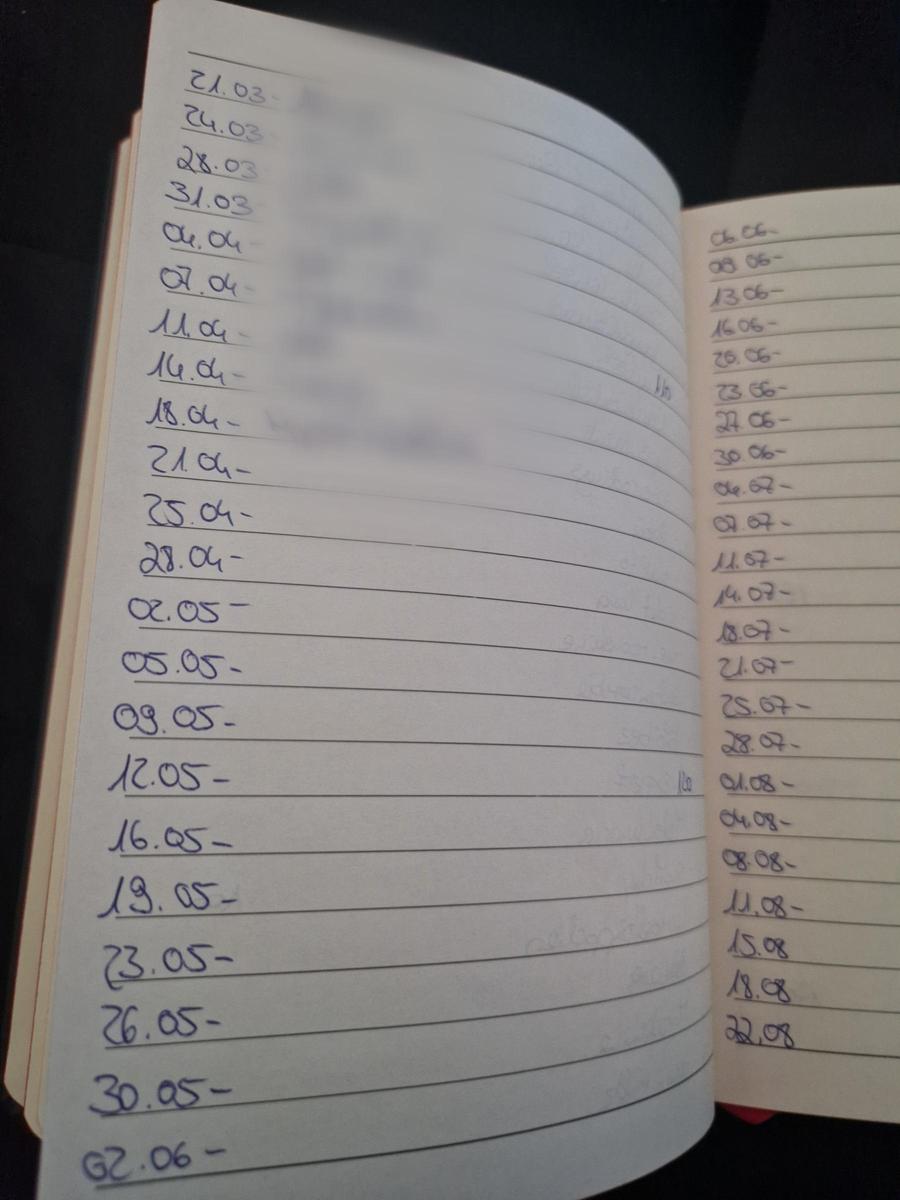 21.03-
24.03
28.03
31.03
04.04
07.04-
11.04-
14.04-
18.04-
21.04-
25.04-
28.04-
02.05-
05.05-
09.05-
12.05-
16.05-
19.05-
23.05-
26.05-
30.05-
02.06-
110
120
06.06-
09.06-
13.06-
16.06-
20.06-
23.06-
27.06-
30.06-
04.07-
07.07-
11.07-
14.07-
18.07-
21.07-
25.07-
28.07-
01.08-
04.08-
08.08-
11.08-
15.08
18.08
22.08